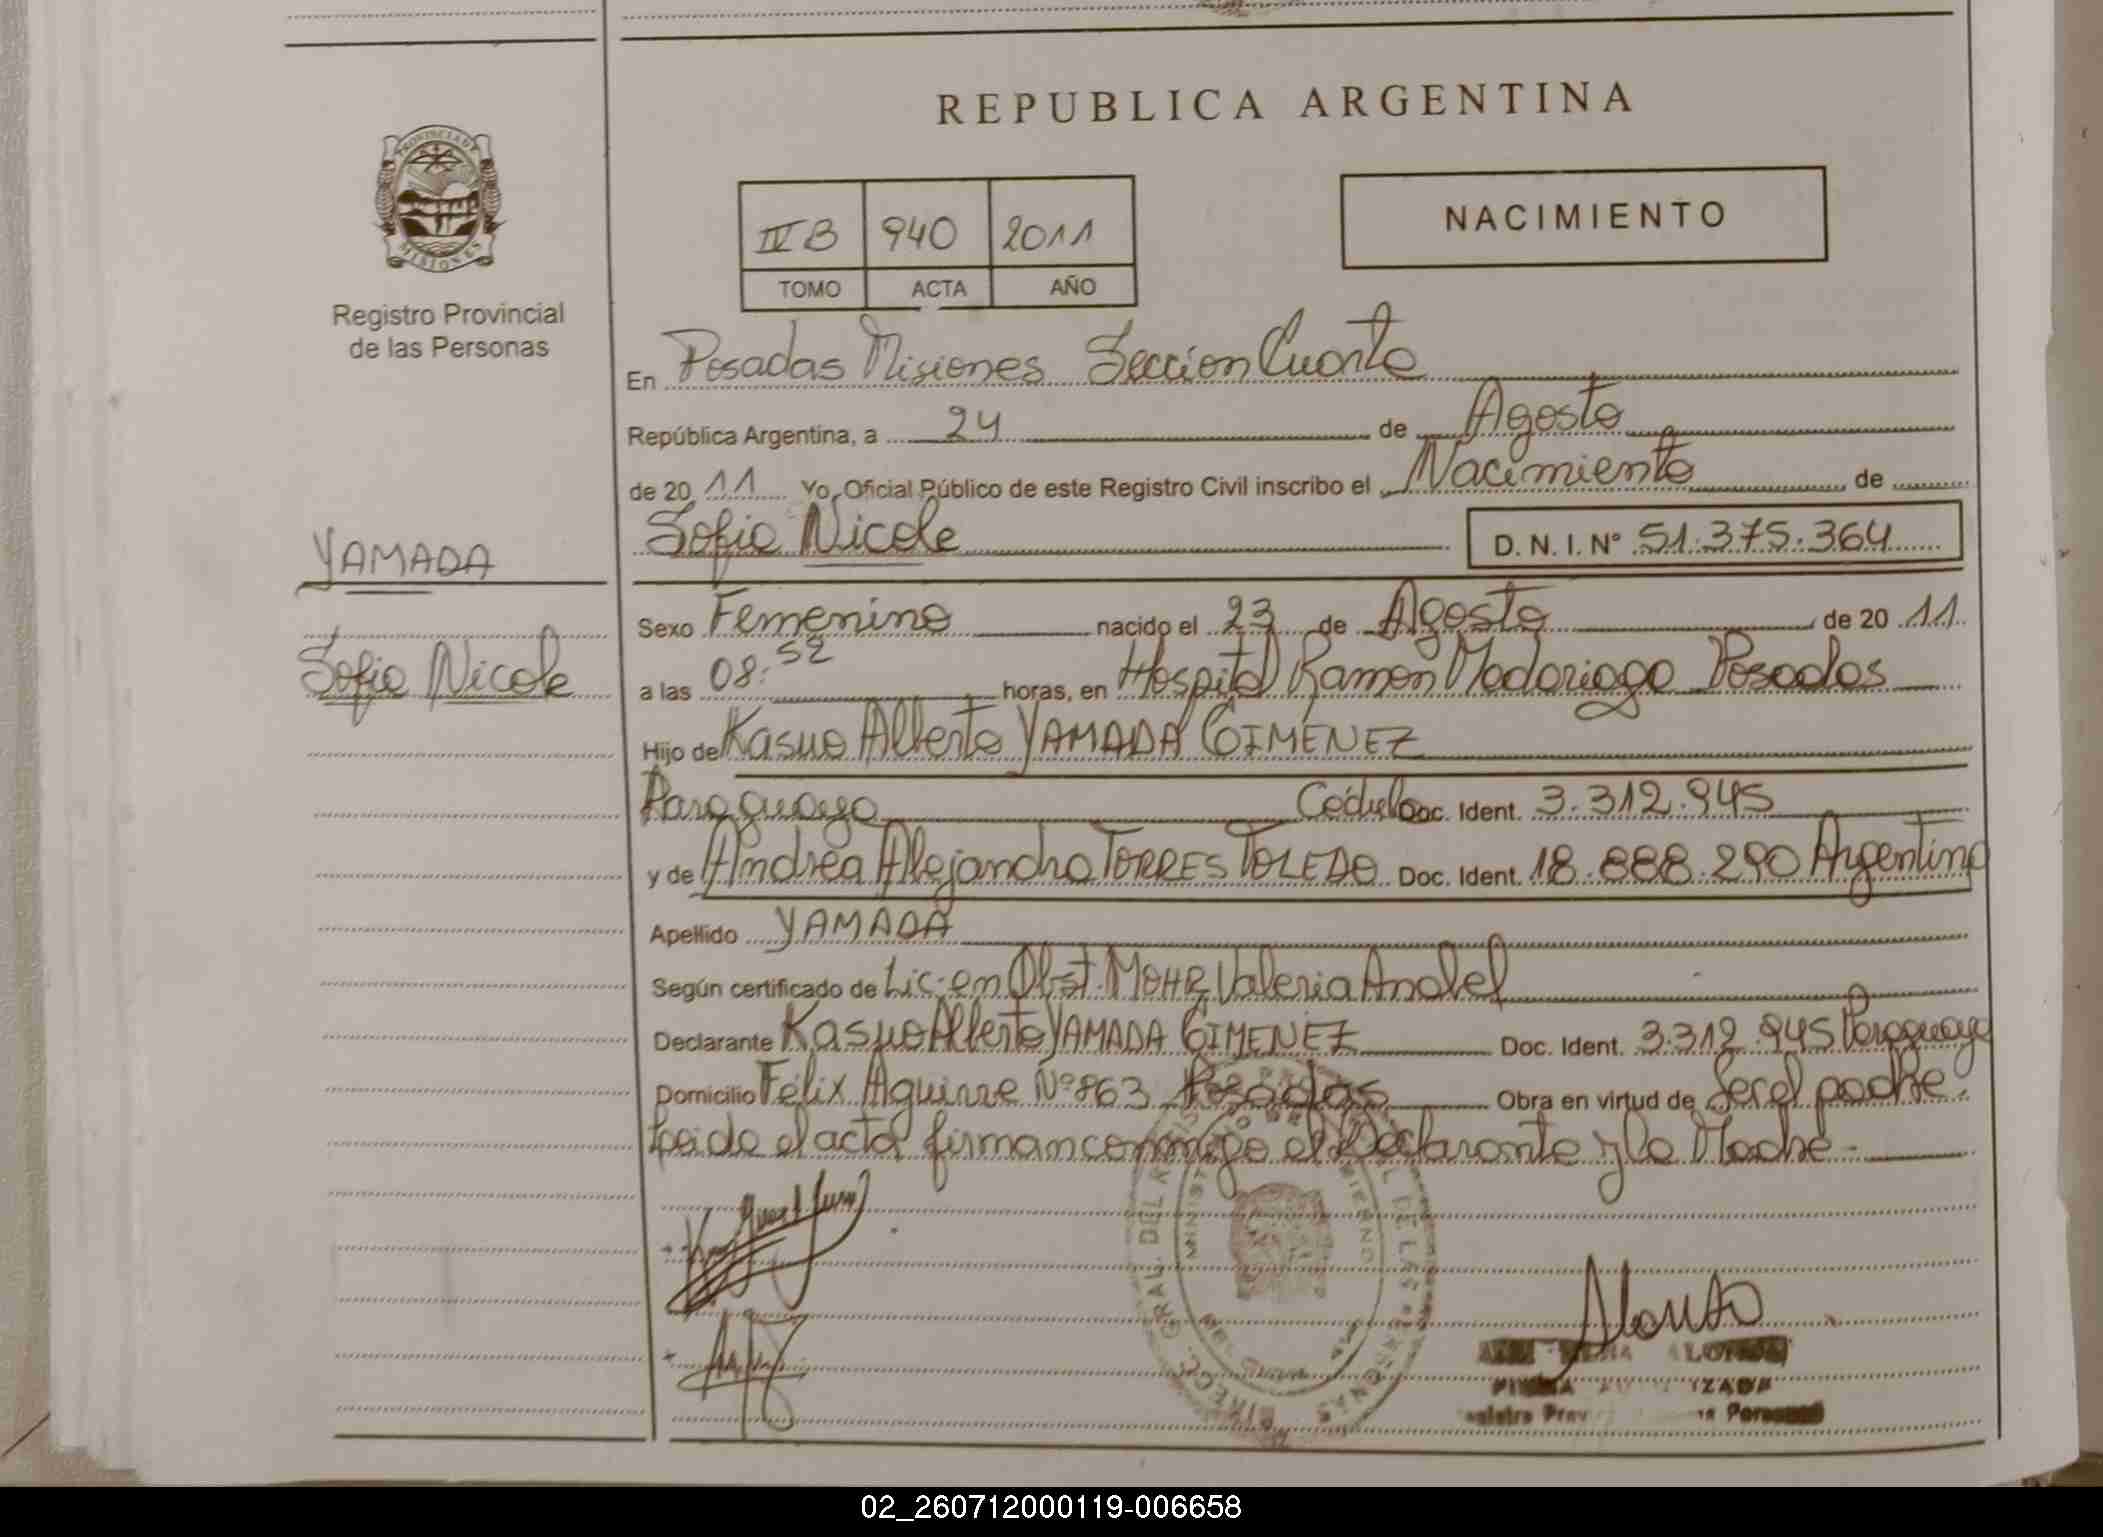 REPUBLICA ARGENTINA
PROVINCIA DE
MISIONES
Registro Provincial
de las Personas
IV B 940 2011
TOMO ACTA AÑO
NACIMIENTO
En Posadas Misiones Sección Cuarta
República Argentina, a 24 de Agosto
de 20 11 Yo, Oficial Público de este Registro Civil inscribo el Nacimiento de
YAMADA
Sofia Nicole
Sofia Nicole D.N.I. Nº 51.375.364
Sexo Femenino nacido el 23 de Agosto de 20 11
a las 08:52 horas, en Hospital Ramon Madariaga Posadas
Hijo de Kasuo Alberto YAMADA GIMENEZ
Paraguayo Cédula Doc. Ident. 3.312.945
y de Andrea Alejandra TORRES TOLEDO Doc. Ident. 18.888.290 Argentina
Apellido YAMADA
Según certificado de Lic. en Obst. MOHR Valeria Anabel
Declarante Kasuo Alberto YAMADA GIMENEZ Doc. Ident. 3.312.945 Paraguayo
Domicilio Félix Aguirre Nº 863 Posadas Obra en virtud de Ser el padre.
Leida el acta firman conmigo el Declarante y la Madre.-
ALONSO
02_260712000119-006658